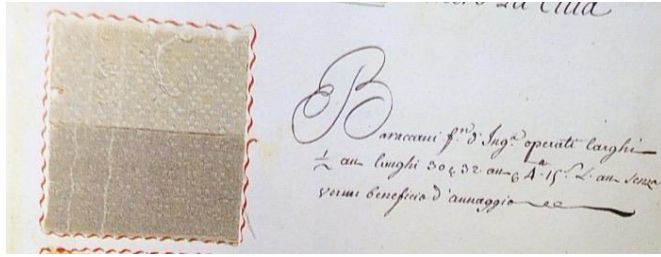 la Città
Baraccani f.ni d'Ing.a operati larghi
1/2 au. lunghi 30 e 32 au. 4 15 L. au. senza
verun beneficio d'aunaggio